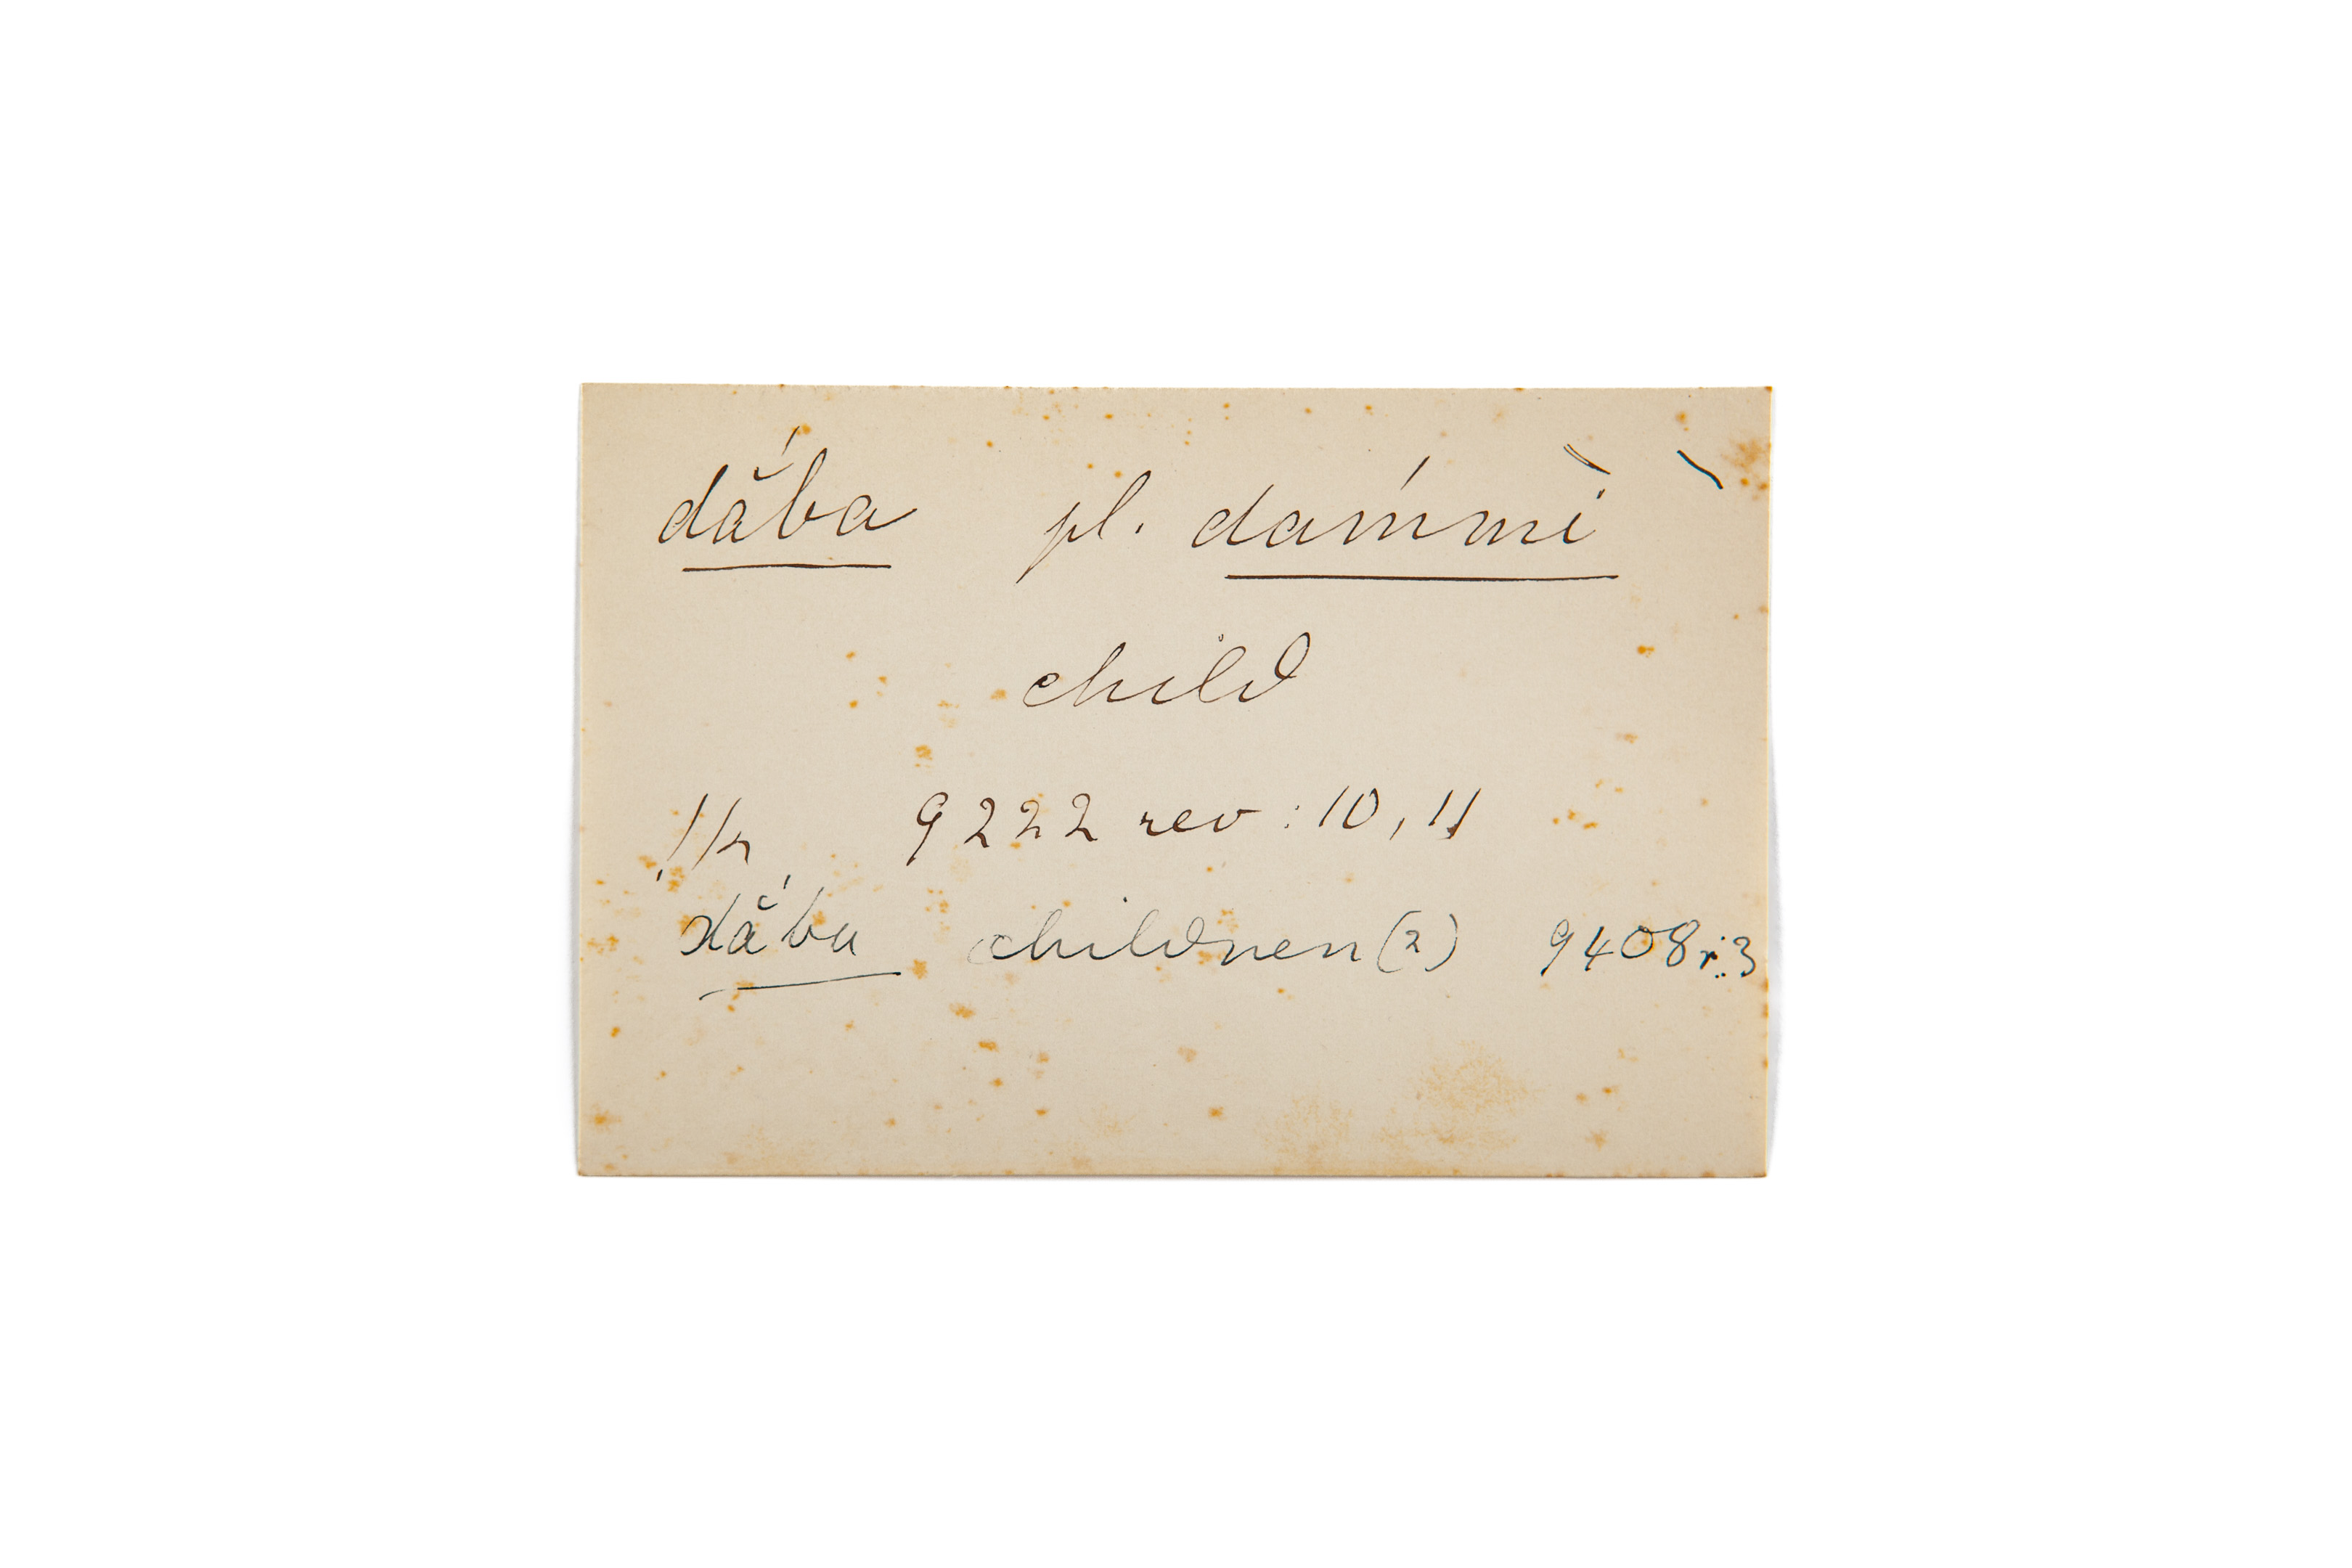 dắba pl. daḿmi
child
!k 9222 rev: 10, 11
dắba children (2) 9408 r: 3